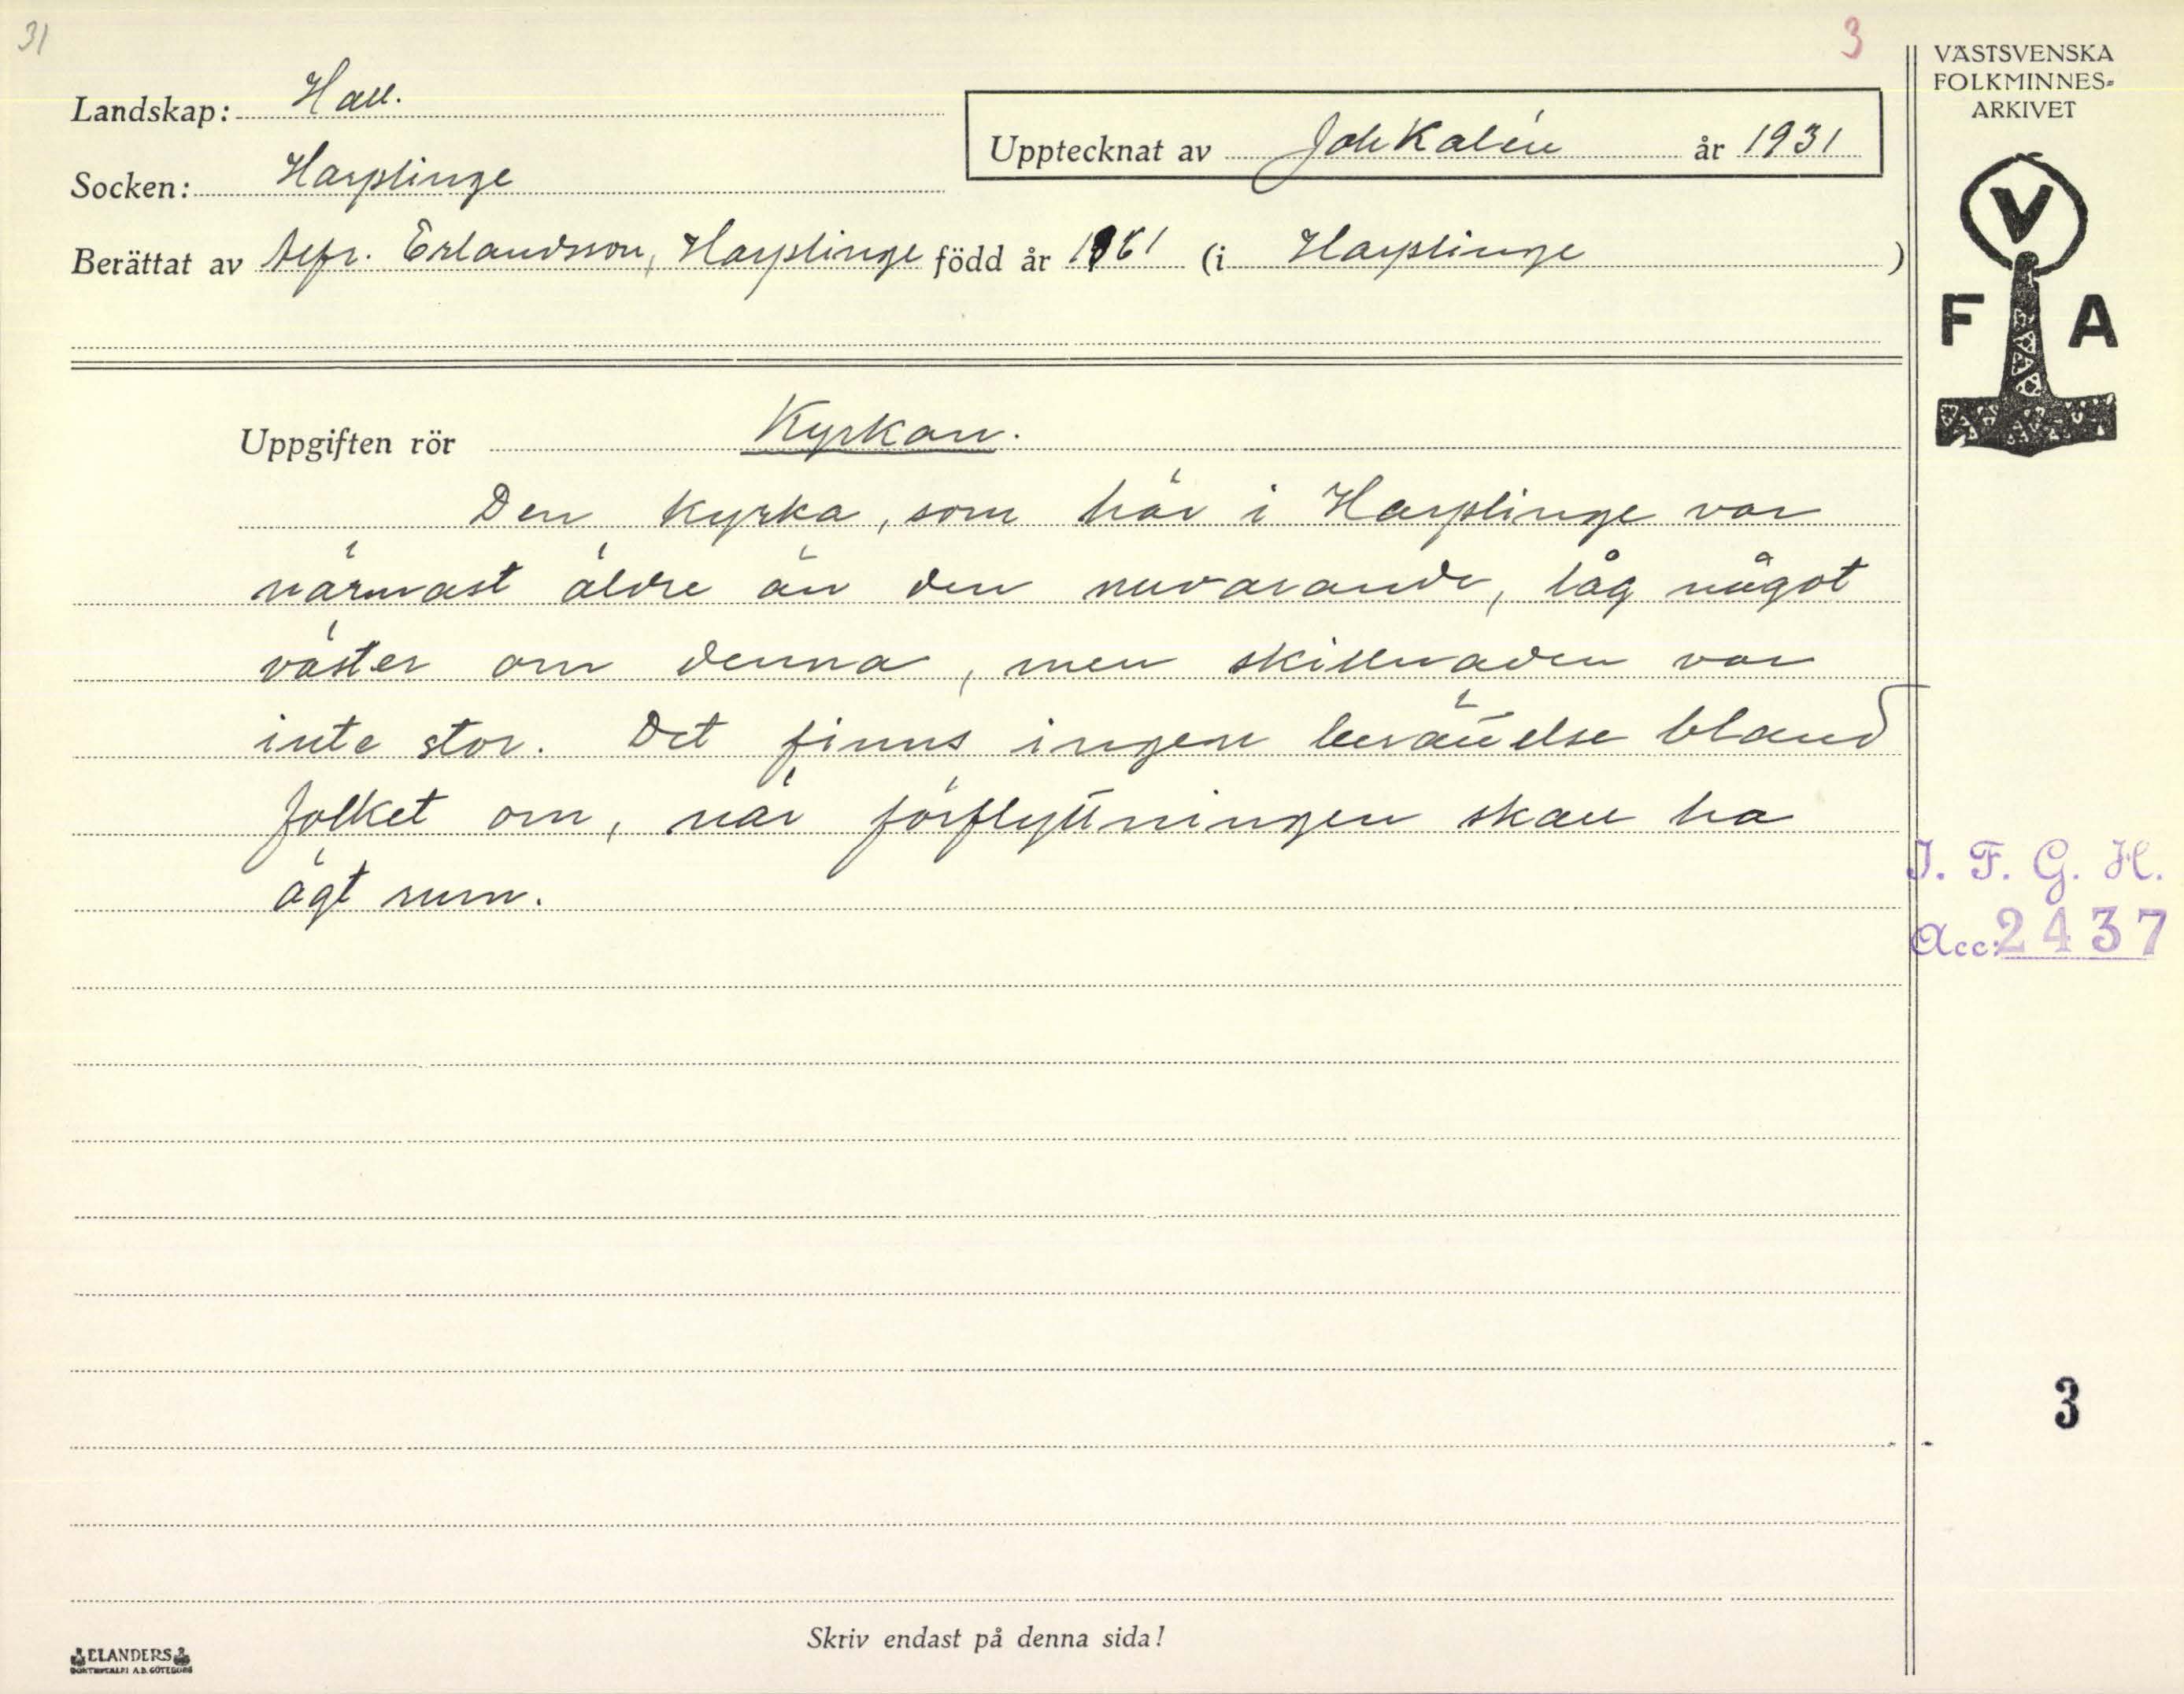 31
3
VÄSTSVENSKA
FOLKMINNES-
ARKIVET
Landskap: Hall.
Upptecknat av Joh Kalén år 1931
Socken: Harplinge
Berättat av Alfr. Erlandsson, Harplinge född år 1861 (i Harplinge)
V
F A
Uppgiften rör Kyrkan.
Den kyrka, som här i Harplinge var
närmast äldre än den nuvarande, låg något
väster om denna, men skillnaden var
inte stor. Det finns ingen berättelse bland
folket om, när förflyttningen skall ha
ägt rum.
I. F. G. H.
Acc: 2437
3
Skriv endast på denna sida!
ELANDERS
BOKTRYCKERI A.B. GÖTEBORG